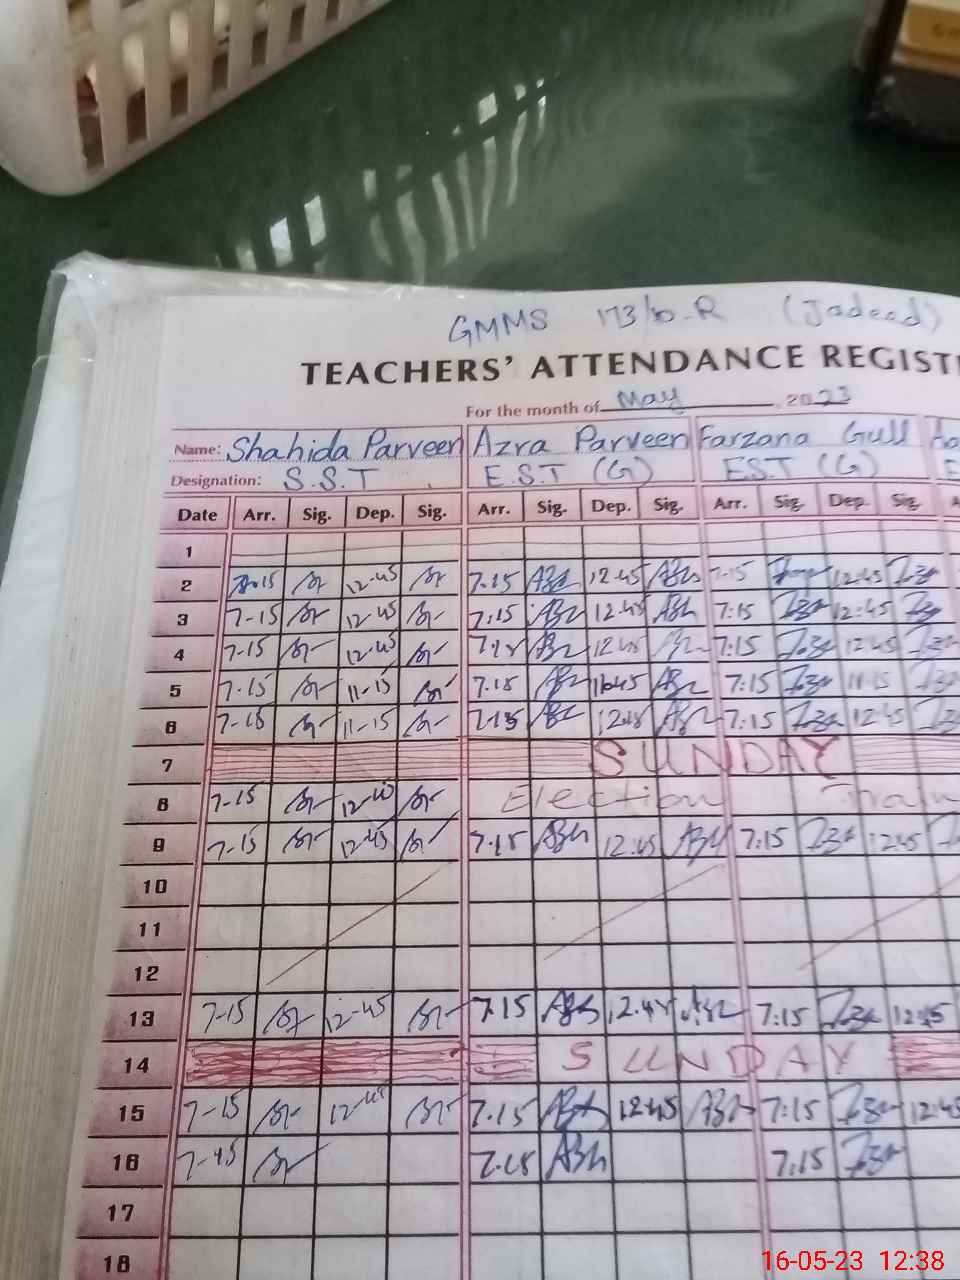 GMMS 173/10-R (Jadeed)
TEACHERS' ATTENDANCE REGIST
For the month of May, 2023
Name: Shahida Parveen Azra Parveen Farzana Gull
Designation: S.S.T E.S.T (G) EST (G)
Date Arr. Sig. Dep. Sig. Arr. Sig. Dep. Sig. Arr. Sig. Dep. Sig
1
2 7-15 12-45 7.15 12.45 7-15 12-45
3 7-15 12-45 7.15 12.45 7:15 12:45
4 7-15 12-45 7.15 12.45 7:15 12:45
5 7-15 11-15 7.15 11.45 7:15 11:15
6 7-15 11-15 7.15 12.45 7:15 12:45
7 SUNDAY
8 7-15 12-45 Election Train
9 7-15 12-45 7.15 12.45 7:15 12:45
10
11
12
13 7-15 12-45 7.15 12.45 7:15 12:45
14 SUNDAY
15 7-15 12-45 7.15 12.45 7:15 12:45
16 7-45 7.15 7:15
17
18
16-05-23 12:38